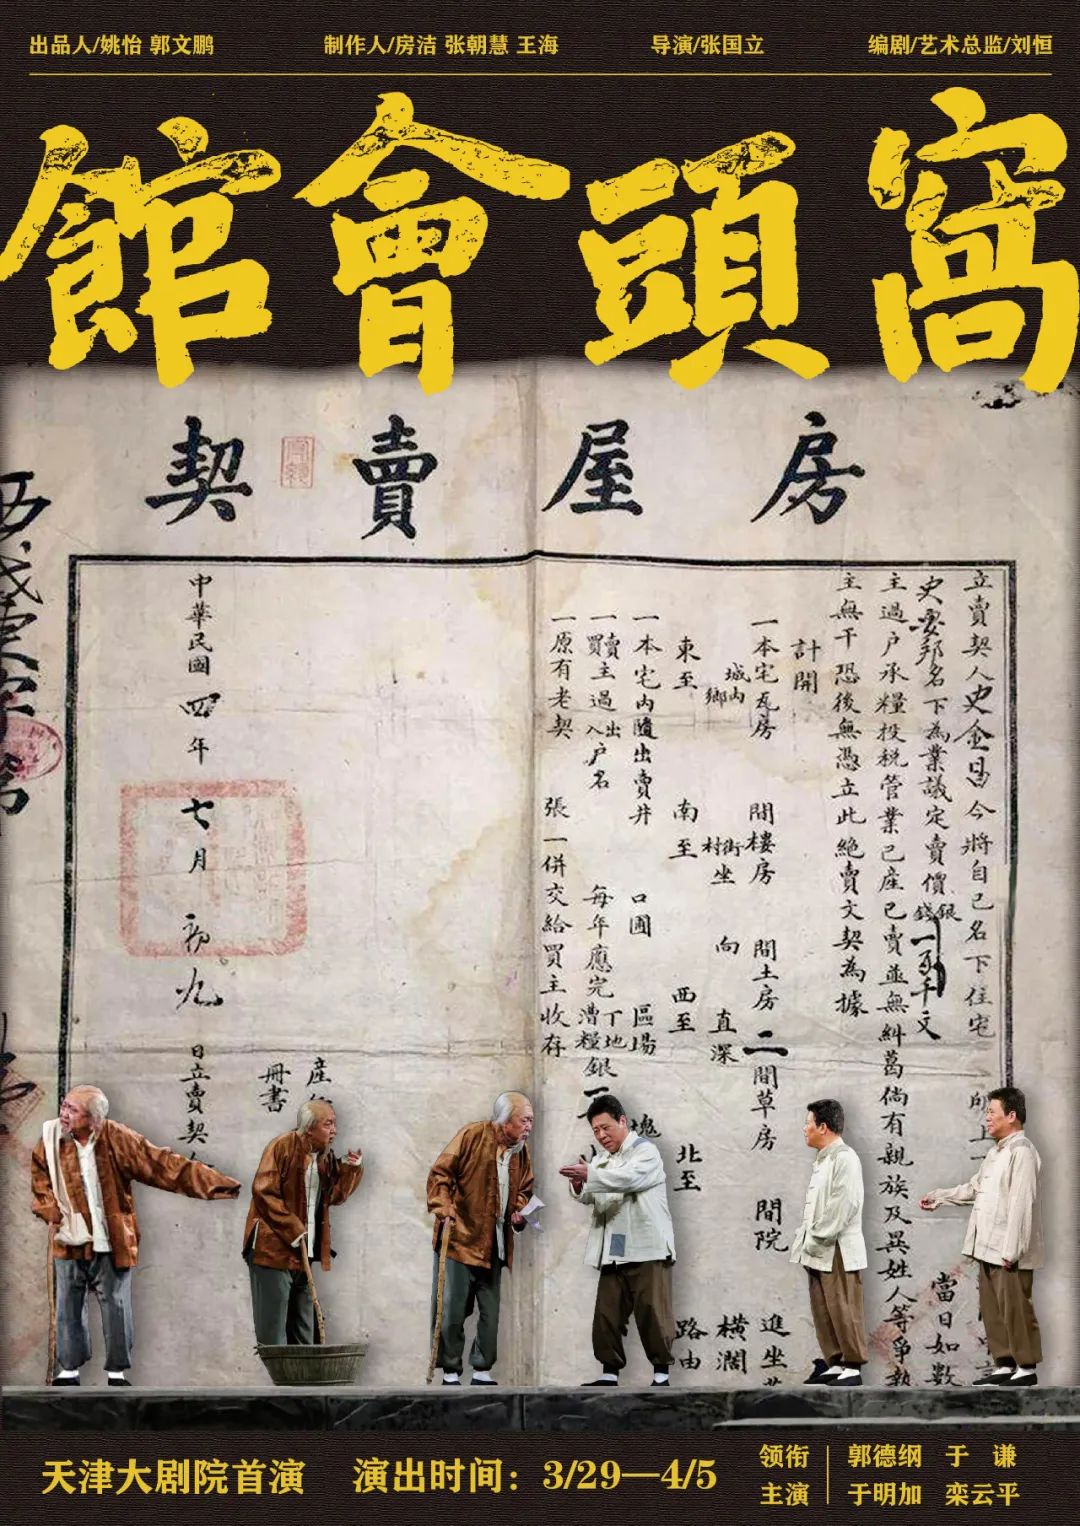 出品人/姚怡 郭文鹏
制作人/房洁 张朝慧 王海
导演/张国立
编剧/艺术总监/刘恒
窩頭會館
房屋賣契
立賣契人史金昌今將自己名下住宅 一所上
史安邦名下為業議定賣價銀錢一百千文 當日如數
主過戶承糧投税管業已產已賣並無糾葛倘有親族及異姓人等爭執
主無干恐後無憑立此絶賣文契為據
計開
一本宅瓦房 間樓房 間土房 二間草房 間院
城内鄉 村街坐 向 直深 橫濶 進坐
東至 南至 西至 北至 路由
一本宅内隨出賣井 口圃 區場 塊
一買賣主過入出戶名 每年應完漕糧銀丁地
一原有老契 張一併交給買主收存
產
冊書
中華民國四年七月初九日立賣契
天津大剧院首演
演出时间：3/29—4/5
领衔主演
郭德纲 于 谦
于明加 栾云平